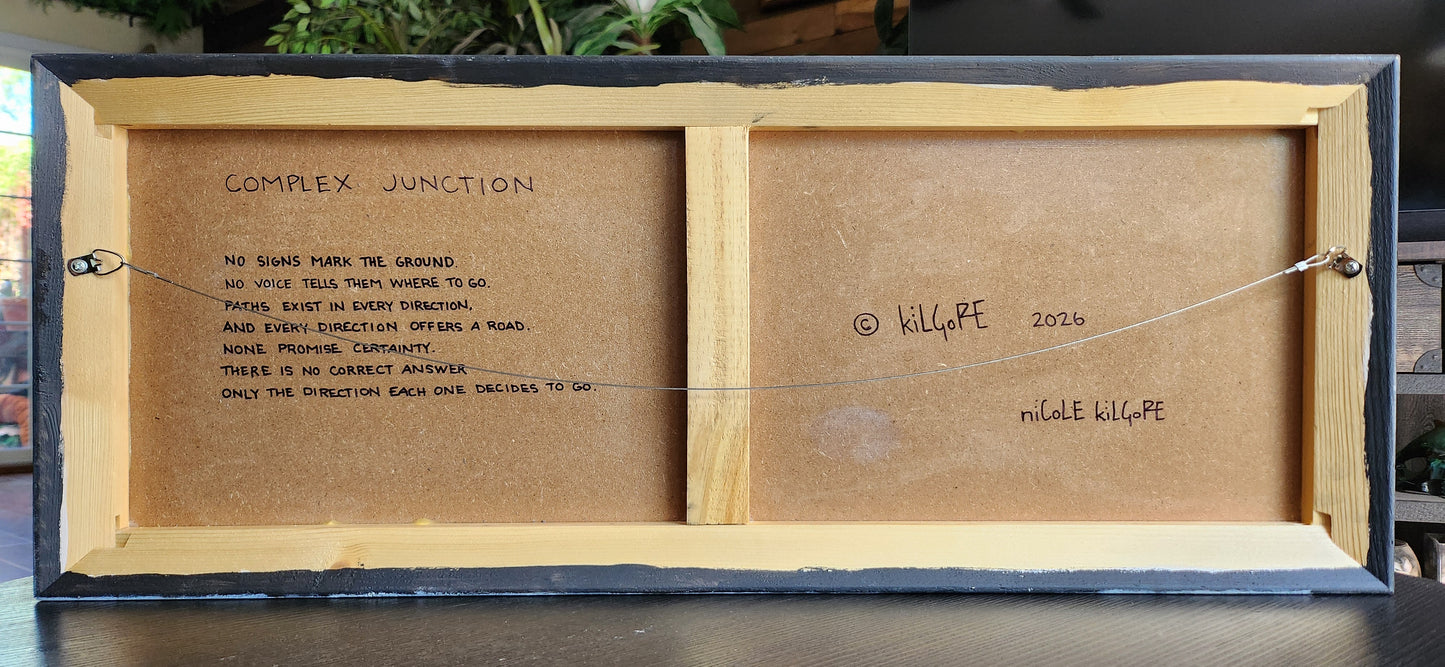 COMPLEX JUNCTION
NO SIGNS MARK THE GROUND.
NO VOICE TELLS THEM WHERE TO GO.
PATHS EXIST IN EVERY DIRECTION,
AND EVERY DIRECTION OFFERS A ROAD.
NONE PROMISE CERTAINTY.
THERE IS NO CORRECT ANSWER
ONLY THE DIRECTION EACH ONE DECIDES TO GO.
© kiLGoRE 2026
niCoLE kiLGoRE